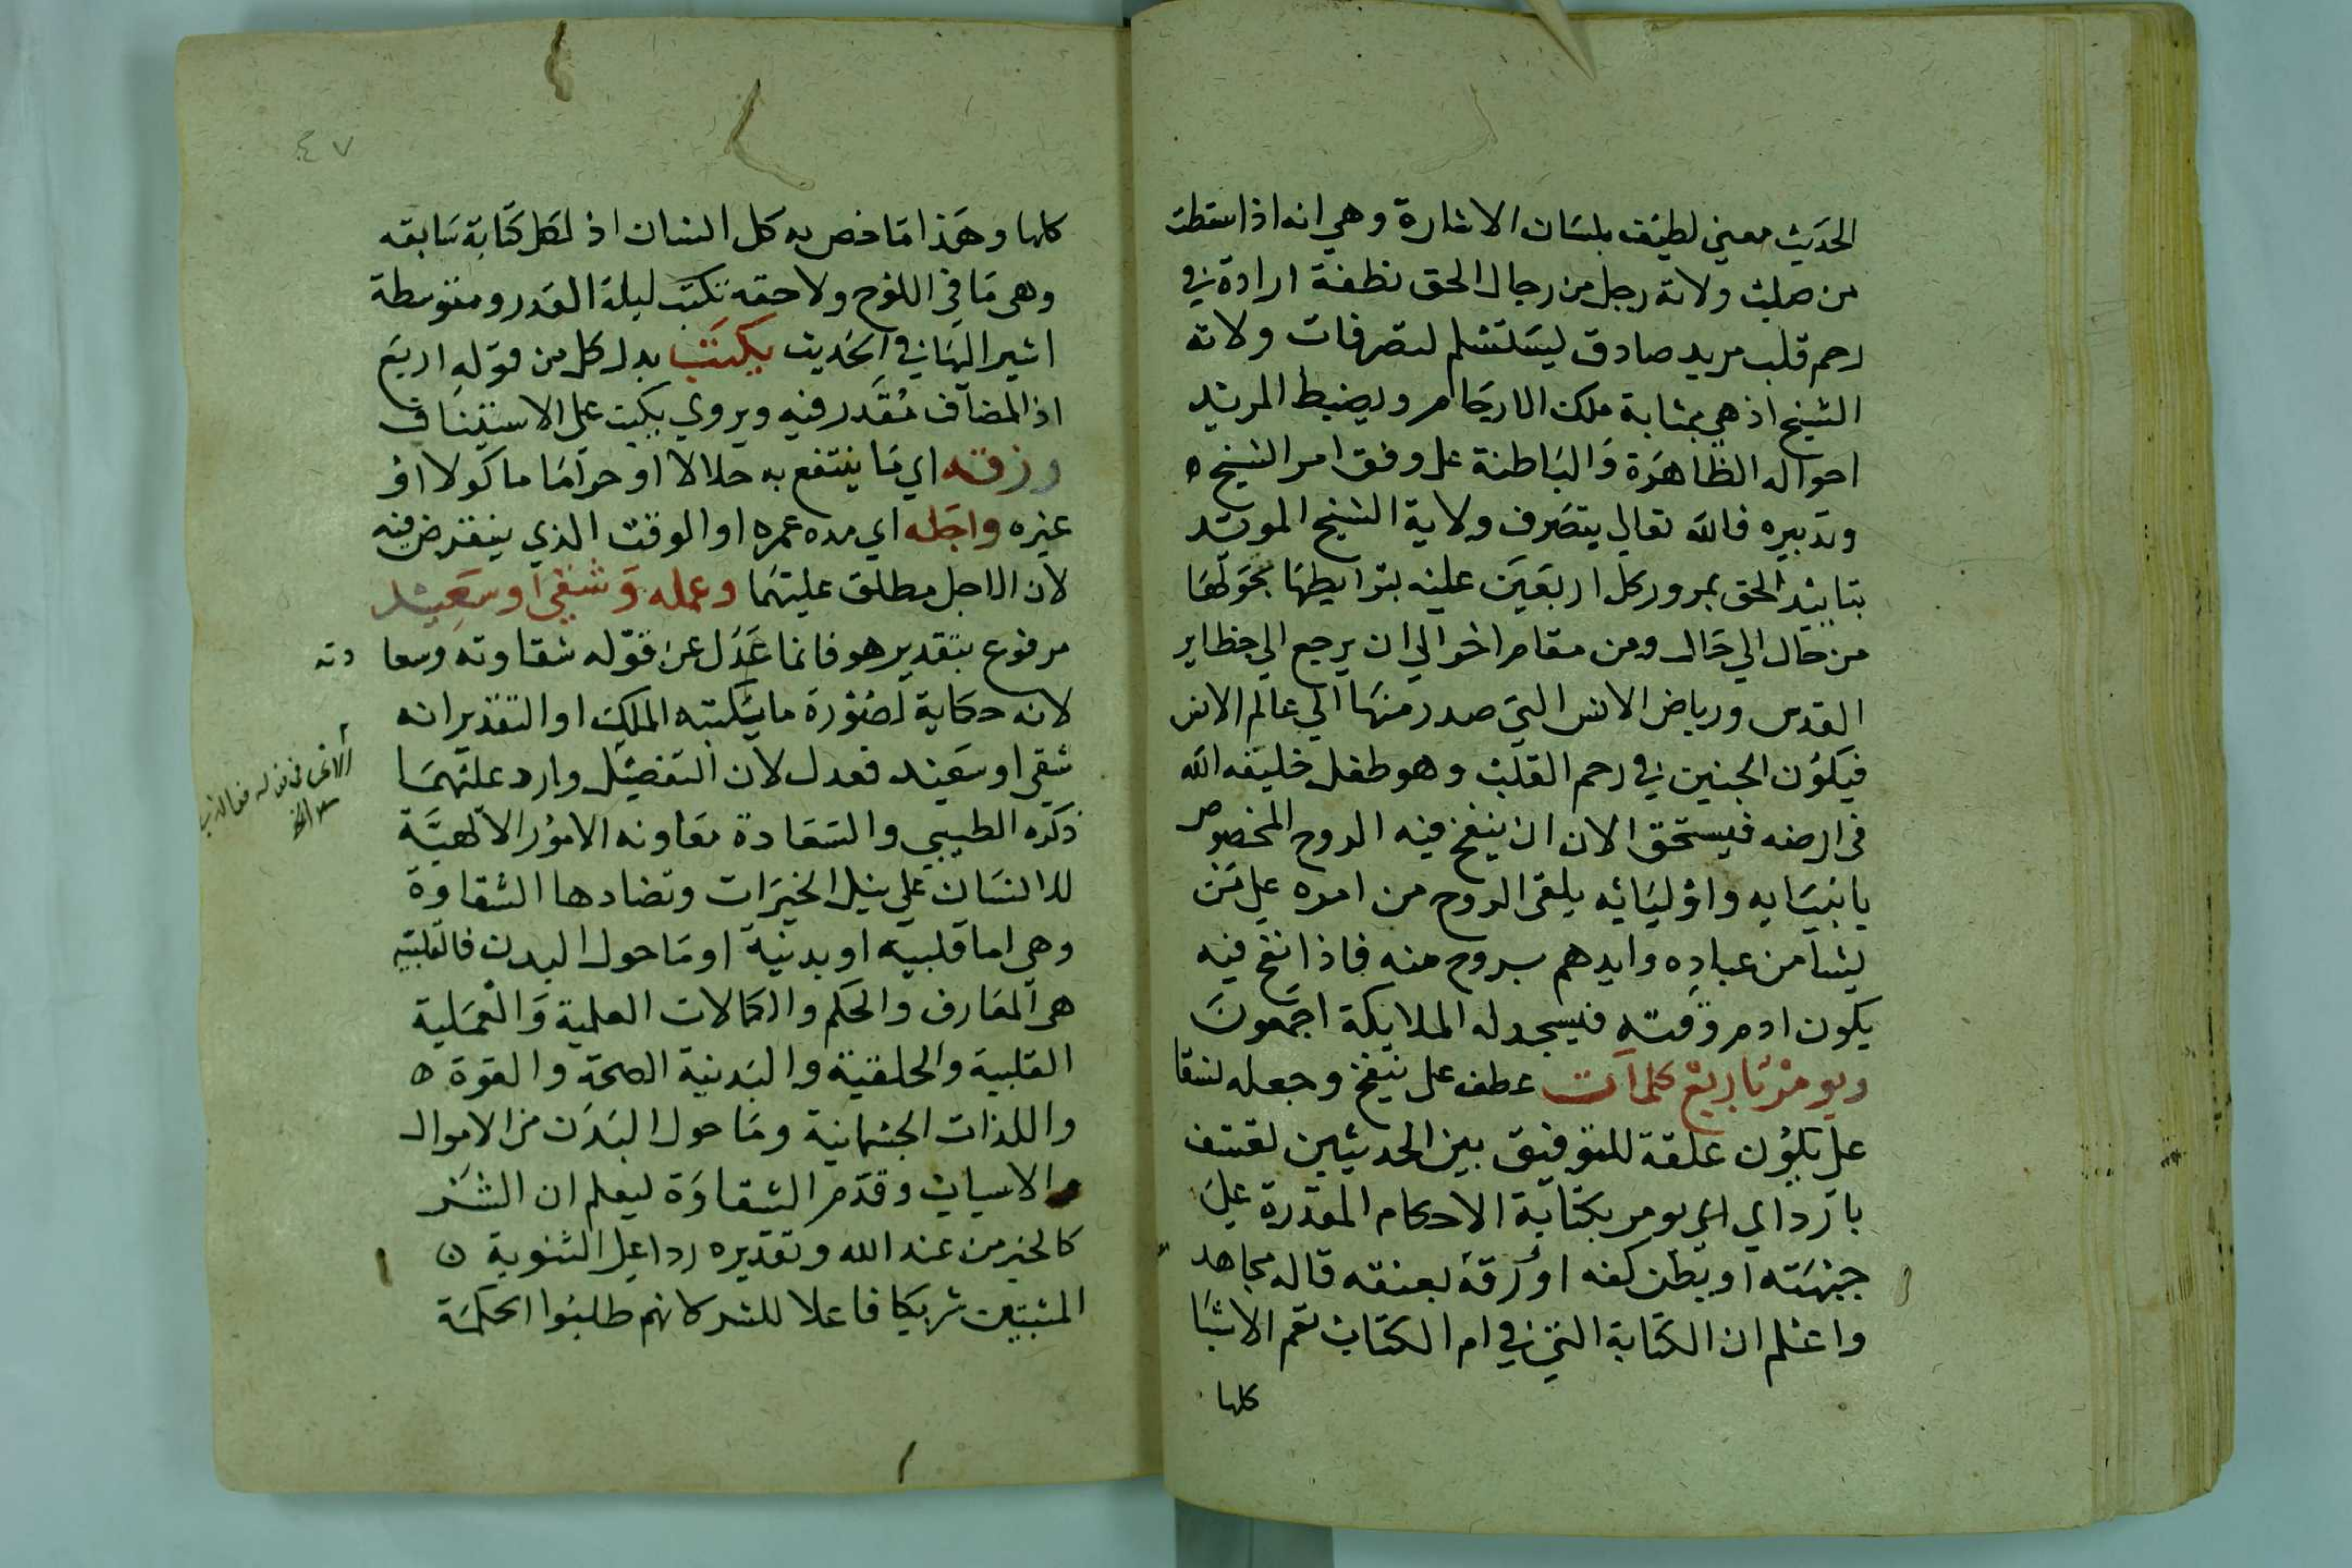 الحديث معني لطيف بلسان الاشارة وهي انه اذا سقطت
من صلب ولاية رجل من رجال الحق نطفة ارادة في
رحم قلب مريد صادق ليستسلم لتصرفات ولاية
الشيخ اذ هي بمثابة ملك الارحام ويضبط المريد
احواله الظاهرة والباطنة على وفق امر الشيخ ه
وتدبيره فالله تعالى يتصرف ولاية الشيخ المويد
بتاييد الحق بمرور كل اربعين عليه بشرايطها بحولها
من حال الي حال ومن مقام اخر الي ان يرجع الي حظاير
القدس ورياض الانس التي صدر منها الي عالم الانس
فيكون الجنين في رحم القلب وهو طفل خليفة الله
في ارضه فيستحق الان ان ينفخ فيه الروح المخصوص
بانبيايه واوليايه يلقي الروح من امره علي من
يشا من عباده وايدهم بروح منه فاذا نفخ فيه
يكون ادم وقته فيسجد له الملايكة اجمعون
ويومر باربع كلمات عطف على ينفخ وجعله
على يكون علقة للتوفيق بين الحديثين
اي يومر بكتابة الاحكام المقدرة علي
جبهته او بطن كفه او رقة بعنقه قاله مجاهد
واعلم ان الكتابة التي في ام الكتاب تعم الاشيا
كلها
٤٧
كلها وهذا ما خص به كل انسان اذ لكل كتابة سابقه
وهي ما في اللوح ولاحقه تكتب ليلة القدر ومتوسطة
اشير اليها في الحديث يكتب بدل كل من قوله اربع
اذ المضاف مقدر فيه ويروي يكتب على الاستيناف
ورزقه اي ما ينتفع به حلالا او حراما ماكولا او
غيره واجله اي مده عمره او الوقت الذي ينقرض فيه
لان الاجل مطلق عليهما وعمله وشقي او سعيد
مرفوع بتقدير هو فانما عدل عن قوله شقاوته وسعا دته
لانه حكاية لصورة ما يكتبه الملك او التقدير انه
شقي او سعيد فعدل لان التفصيل وارد عليهما
ذكره الطيبي والسعادة معاونه الامور الالهية
للانسان علي نيل الخيرات وتضادها الشقاوة
وهي اما قلبية او بدنية او ما حول البدن فالقلبية
هي المعارف والحكم والكمالات العلمية والعملية
القلبية والخلقية والبدنية الصحة والقوة ه
واللذات الجسمانية وما حول البدن من الاموال
والاسباب وقدم الشقاوة ليعلم ان الشر
كالخير من عند الله وتقديره ردا علي الثنوية ن
المثبتين شريكا فاعلا للشر كانهم طلبوا الحكمة